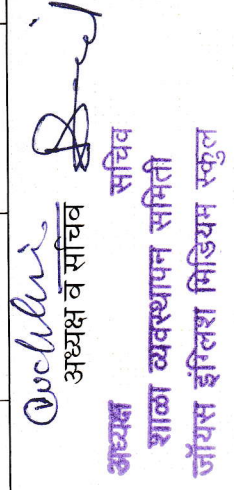 अध्यक्ष व सचिव
अध्यक्ष सचिव
शाळा व्यवस्थापन समिती
जॉयस इंग्लिश मिडियम स्कूल